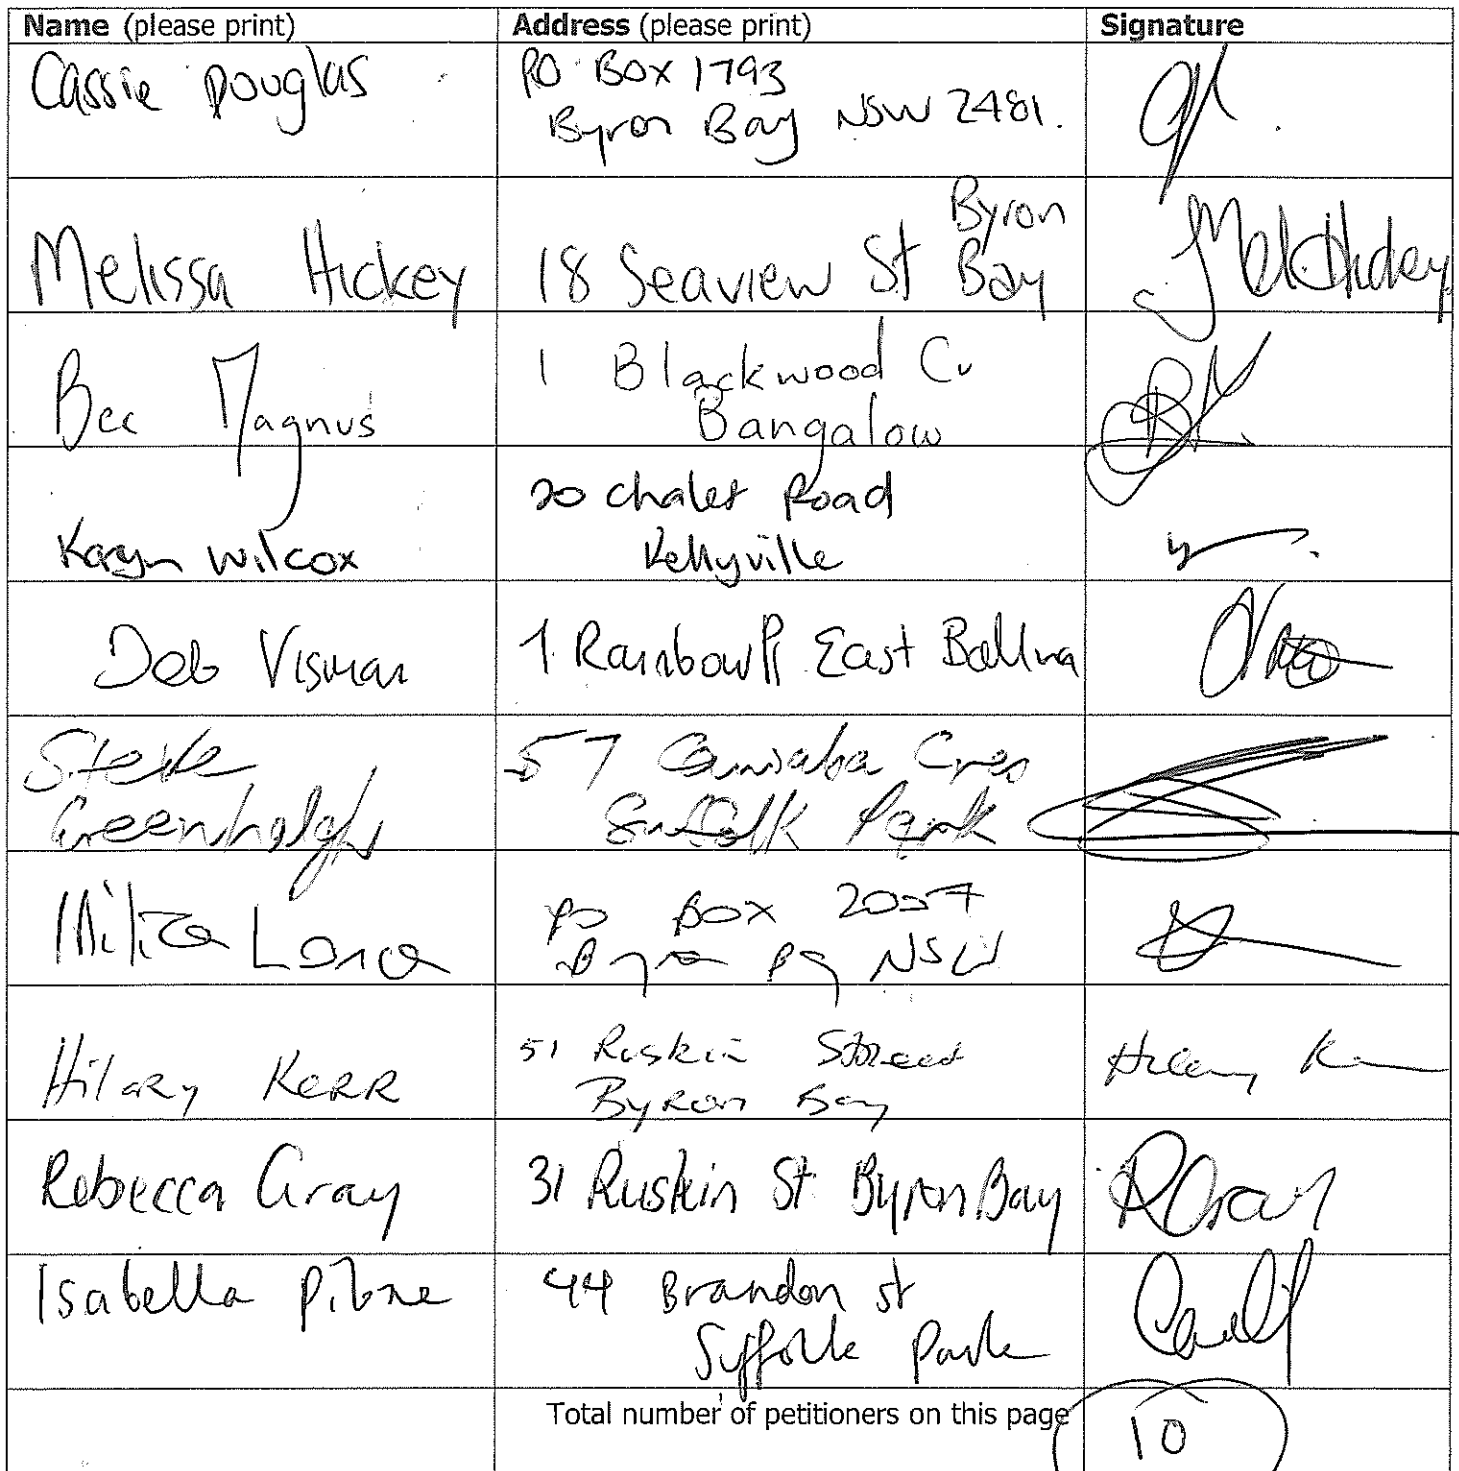 Name (please print) Address (please print) Signature
Cassie Douglas
PO Box 1793
Byron Bay NSW 2481.
Melissa Hickey
18 Seaview St Byron
Bay
Mel Hickey
Bec Magnus
1 Blackwood Cr
Bangalow
Karyn Wilcox
20 Chalet Road
Kellyville
Deb Visman
1 Rainbow Pl East Ballina
Steve
Greenhalgh
57 Cres
Suffolk Park
Milica
PO Box
Byron Bay NSW
Hilary Kerr
51 Ruskin Street
Byron Bay
Hilary K
Rebecca Gray
31 Ruskin St Byron Bay
RGray
Isabella
44 Brandon St
Suffolk Park
Total number of petitioners on this page 10